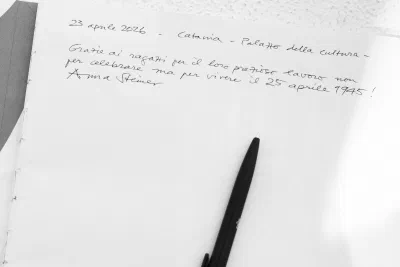 23 aprile 2026 - Catania - Palazzo della cultura -
Grazie ai ragazzi per il loro prezioso lavoro non
per celebrare ma per vivere il 25 aprile 1945!
Anna Steiner